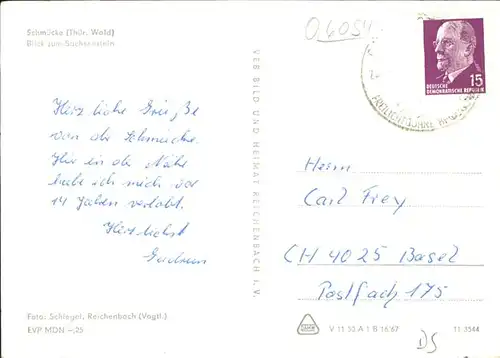 Schmücke (Thür. Wald)
Blick zum Sachsenstein
Herzliche Grüße
von der Schmücke.
Hier in der Nähe
habe ich mich vor
14 Jahren verlobt.
Herzlichst
Gudrun
Foto: Schlegel, Reichenbach (Vogtl.)
EVP MDN –,25
VEB BILD UND HEIMAT REICHENBACH I. V.
06054
15
DEUTSCHE
DEMOKRATISCHE REPUBLIK
Herrn
Carl Frey
CH 4025 Basel
Postfach 175
V 11 50 A 1 B 16/67
11/3544
DS